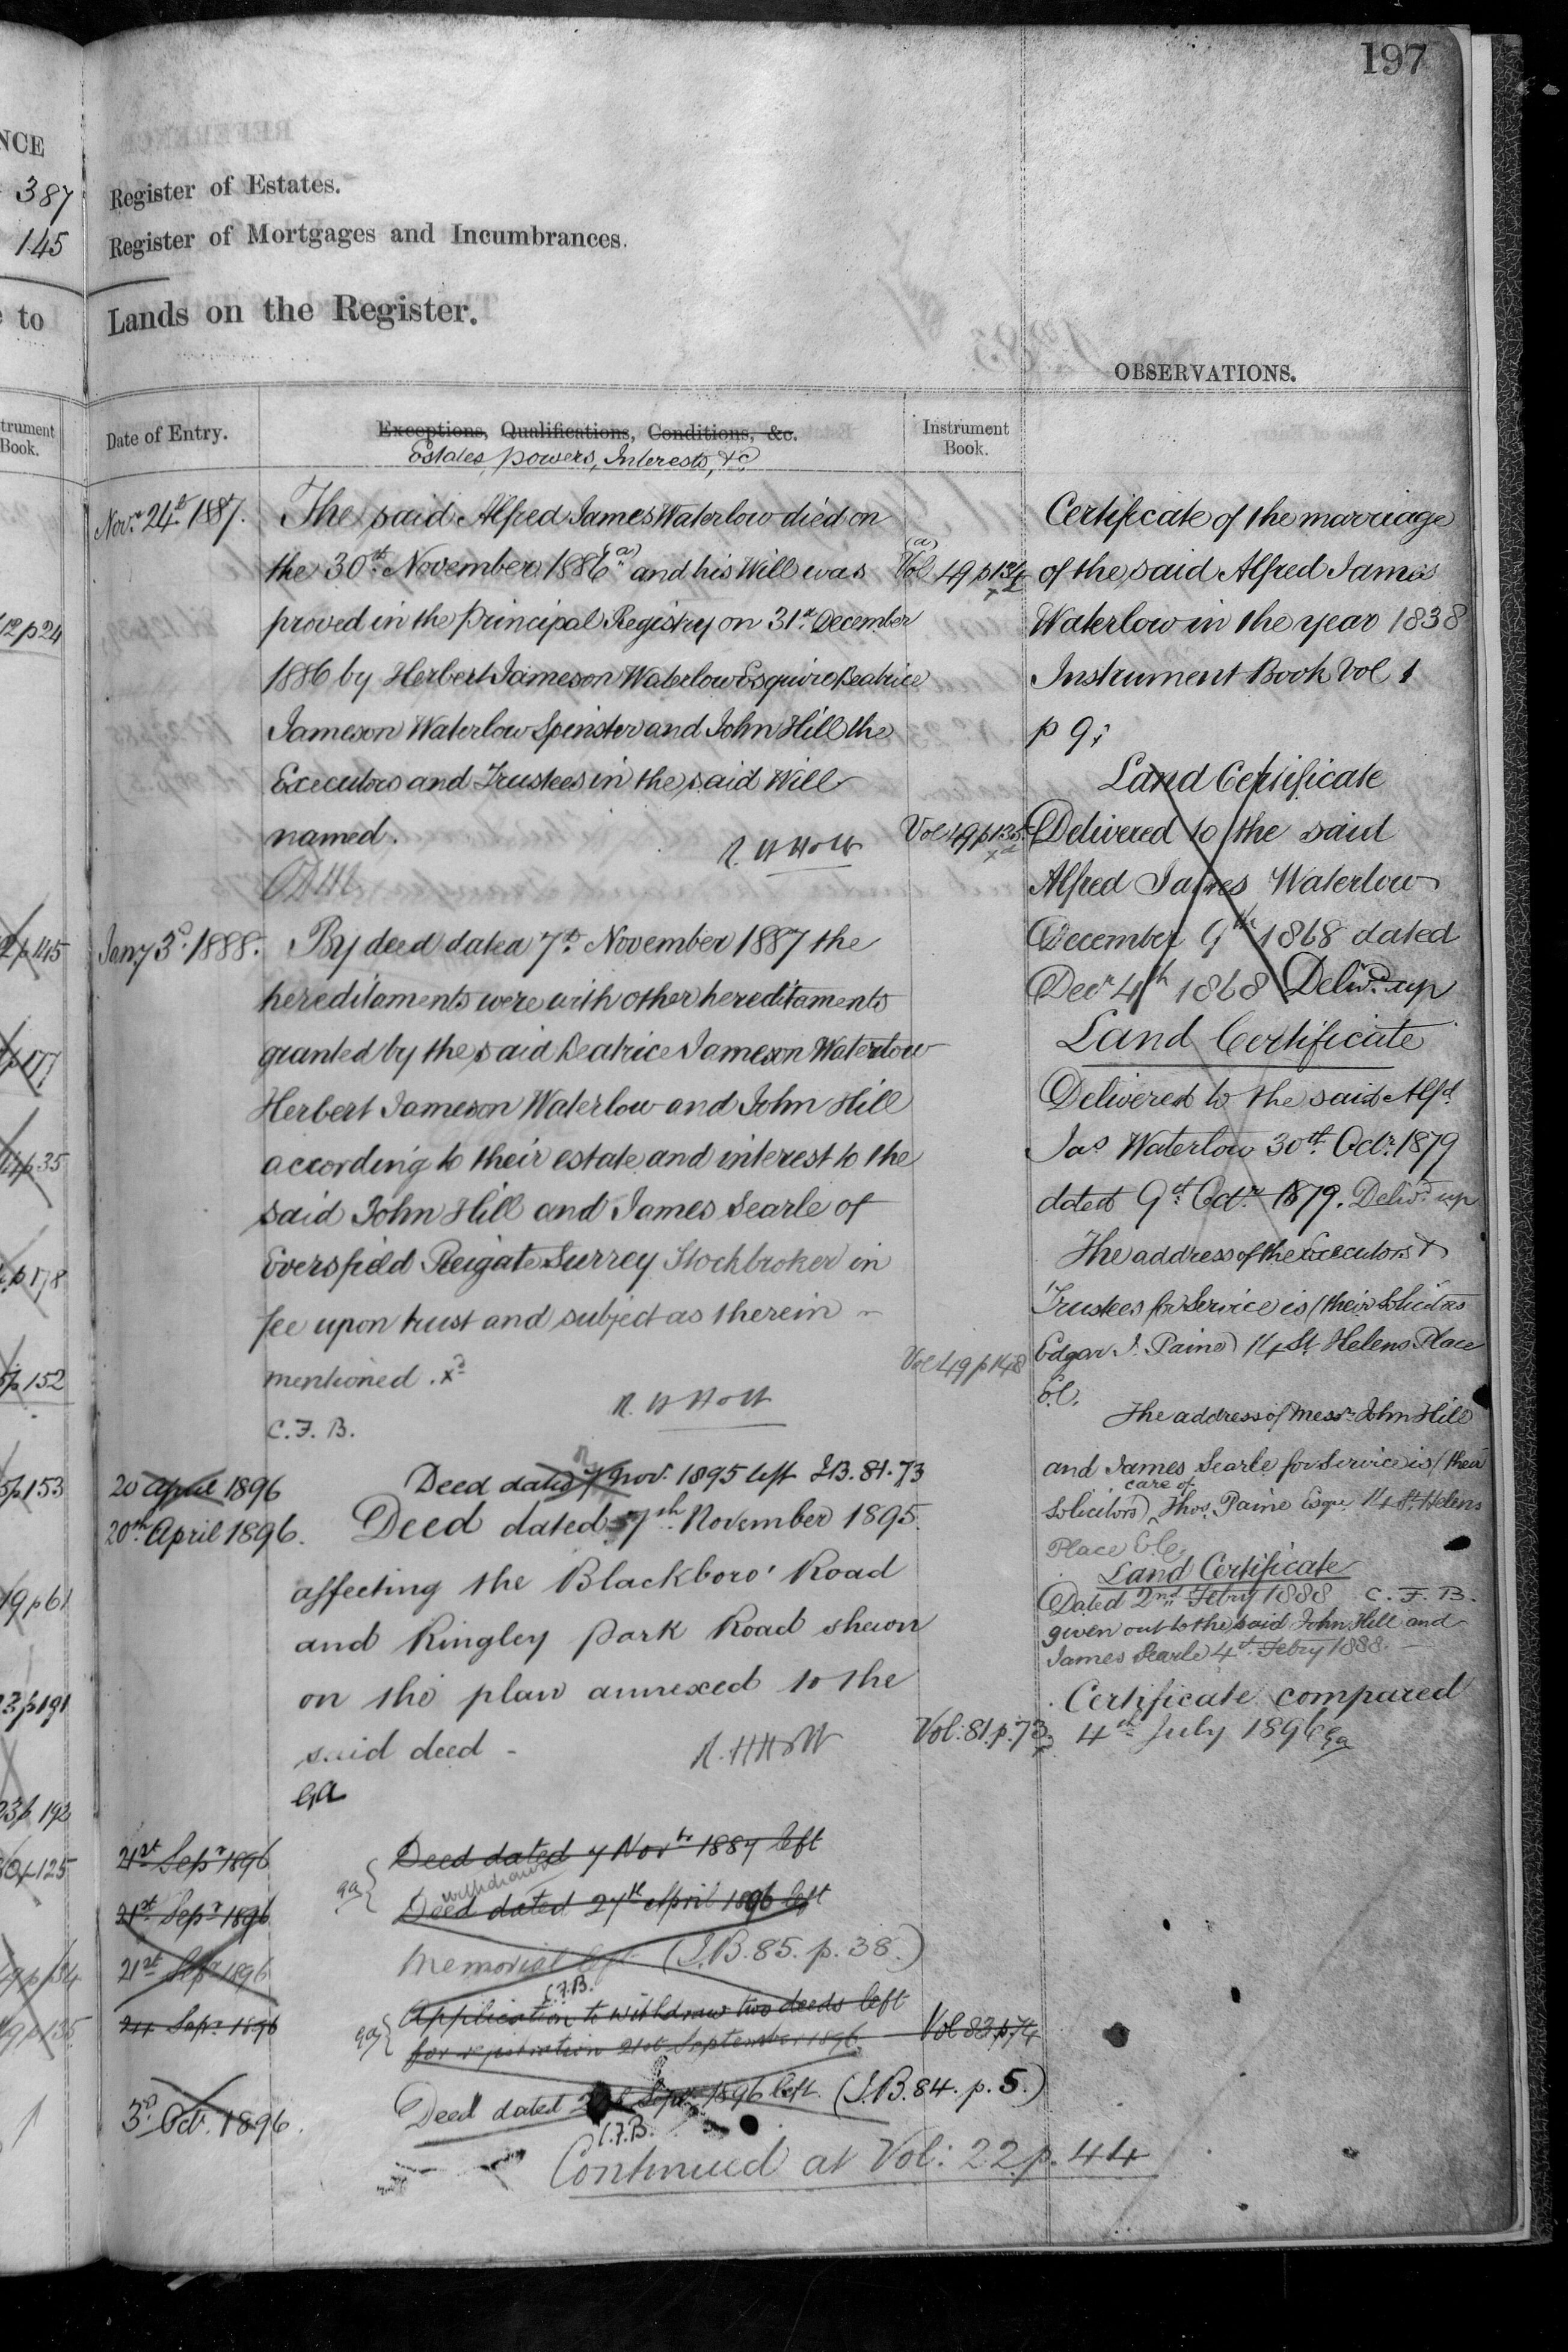 197
NCE
387
145
Register of Estates.
Register of Mortgages and Incumbrances.
to
Lands on the Register.
OBSERVATIONS.
trument
Book.
Date of Entry.
Exceptions, Qualifications, Conditions, &c.
Estates, powers, Interests, &c
Instrument
Book.
Novr 24th 1887.
The said Alfred James Waterlow died on
the 30th November 1886 (a) and his Will was
(a)
Vol 49 p 134
proved in the Principal Registry on 31st December
1886 by Herbert Jameson Waterlow Esquire Beatrice
Jameson Waterlow Spinster and John Hill the
Executors and Trustees in the said Will
named.
Vol 49 p 135
Jany 3d 1888.
By deed dated 7th November 1887 the
hereditaments were with other hereditaments
granted by the said Beatrice Jameson Waterlow
Herbert Jameson Waterlow and John Hill
according to their estate and interest to the
said John Hill and James Searle of
Eversfield Reigate Surrey Stockbroker in
fee upon trust and subject as therein
mentioned.
Vol 49 p 148
C. F. B.
20 April 1896
Deed dated 7 Novr 1895 left I.B. 81. 73
20th April 1896.
Deed dated 7th November 1895
affecting the Blackboro' Road
and Ringley Park Road shewn
on the plan annexed to the
said deed -
Vol: 81. p. 73
GA
21st Sepr 1896
Deed dated 7 Novr 1887 left
withdrawn
21st Sepr 1896
Deed dated 27th April 1896 left
21st Sepr 1896
Memorial left (I.B. 85. p. 38.)
C.F.B.
21st Sepr 1896
Application to withdraw two deeds left
for registration 21st September 1896.
Vol 83 p 74
3d Oct. 1896.
Deed dated Sepr 1896 left. (I.B. 84. p. 5.)
C.F.B.
Continued at Vol: 22 p. 44
Certificate of the marriage
of the said Alfred James
Waterlow in the year 1838
Instrument Book Vol 1
p 9;
Land Certificate
Delivered to the said
Alfred James Waterlow
December 9th 1868 dated
Decr 4th 1868 Delivd up
Land Certificate
Delivered to the said Alfd
Jas Waterlow 30th Octr 1879
dated 9th Octr 1879. Delivd up
The address of the Executors &
Trustees for Service is (their Solicitors
Edgar J. Paine) 14 St Helens Place
E.C.
The address of Messrs John Hill
and James Searle for Service is (their
care of
Solicitors) Thos. Paine Esqre 14 St Helens
Place E.C.
Land Certificate
Dated 2nd Febry 1888 C. F. B.
given out to the said John Hill and
James Searle 4th Febry 1888.
Certificate compared
4th July 1896 ga
12 p 24
2 p 145
p 177
p 35
p 178
p 152
p 153
19 p 61
3 p 191
23 p 192
p 125
49 p 134
49 p 135